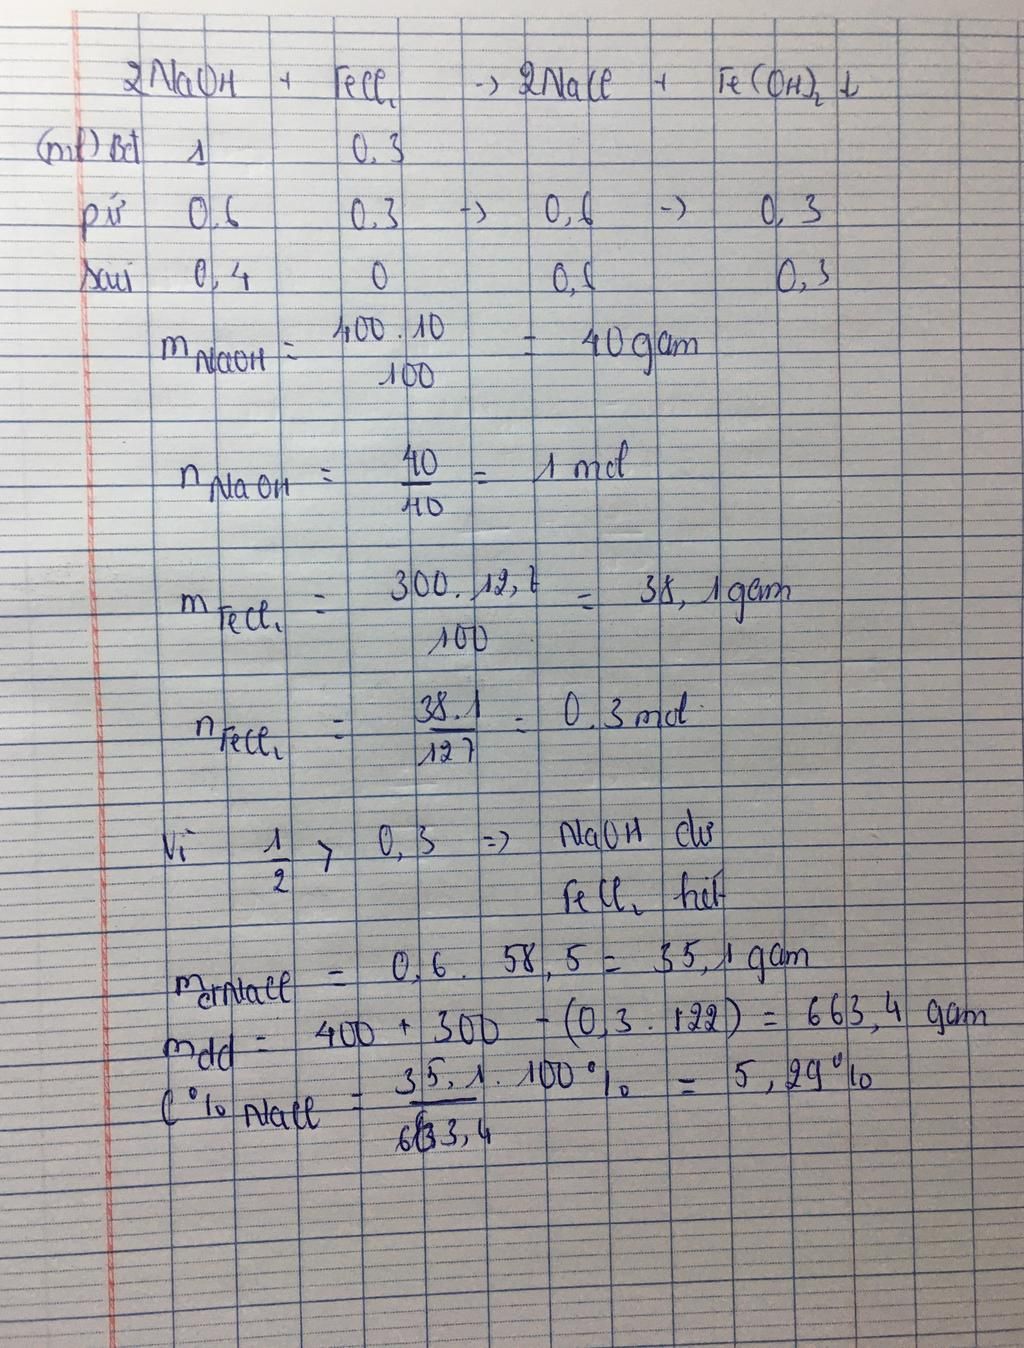 2NaOH + FeCl₂ -> 2NaCl + Fe(OH)₂ ↓
(mol) Bđ 1 0,3
pứ 0,6 0,3 -> 0,6 -> 0,3
sau 0,4 0 0,6 0,3
m NaOH = 400.10 / 100 = 40 gam
n NaOH = 40 / 40 = 1 mol
m FeCl₂ = 300.12,7 / 100 = 38,1 gam
n FeCl₂ = 38.1 / 127 = 0.3 mol
Vì 1/2 > 0,3 => NaOH dư
FeCl₂ hết
m ctNaCl = 0,6. 58,5 = 35,1 gam
m dd = 400 + 300 - (0,3.122) = 663,4 gam
C% NaCl = 35,1.100% / 663,4 = 5,29%